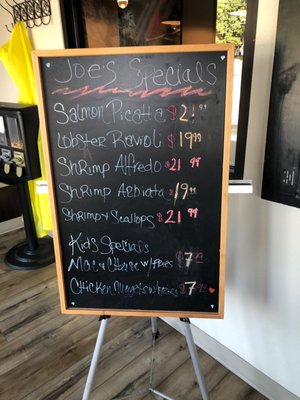 Joe's Specials
Salmon Picatta $21.99
Lobster Ravioli $19.99
Shrimp Alfredo $21.99
Shrimp Arbiata $19.99
Shrimp & Scallops $21.99
Kids Specials
Mac & Cheese w/fries $7.99
Chicken Nuggets w/fries $7.99